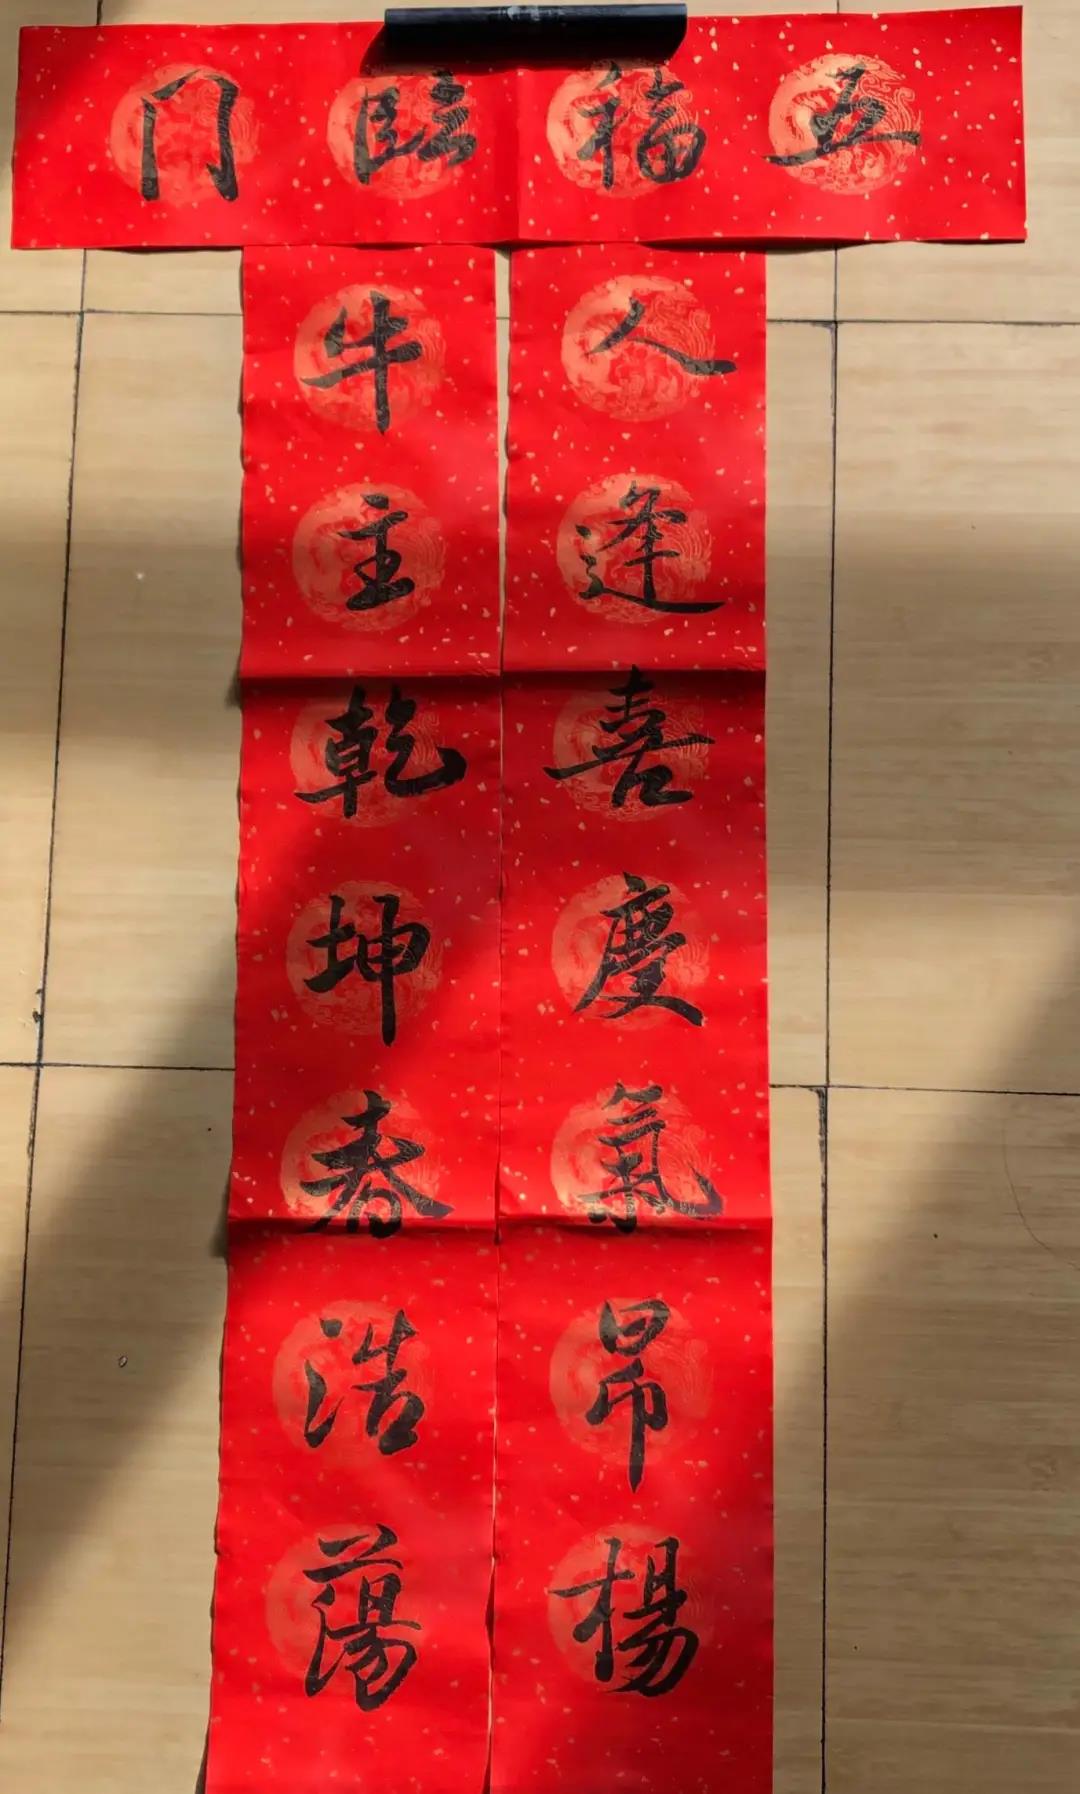 五福臨门
人逢喜慶氣昂楊
牛主乾坤春浩蕩